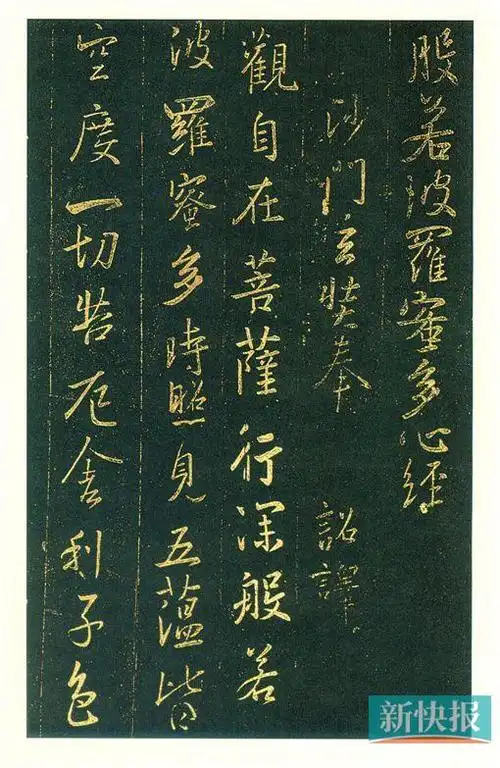 般若波羅蜜多心經
沙門玄奘奉 詔譯
觀自在菩薩行深般若
波羅蜜多時照見五蘊皆
空度一切苦厄舍利子色
新快报